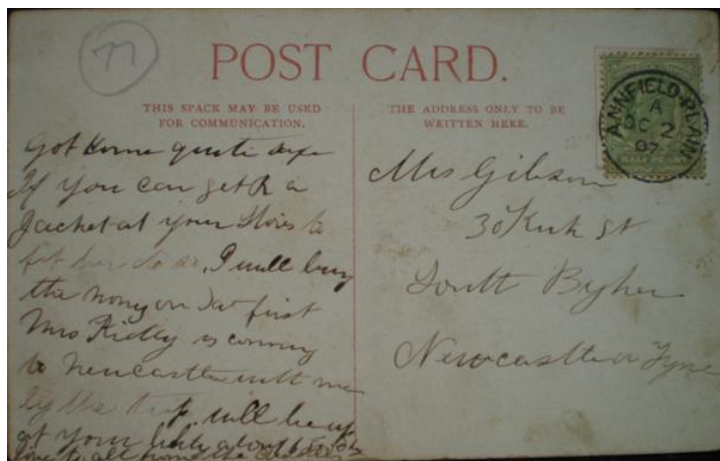 77
POST CARD.
THIS SPACE MAY BE USED
FOR COMMUNICATION.
THE ADDRESS ONLY TO BE
WRITTEN HERE.
ANNFIELD-PLAIN
A
OC 2
07
HALF PENNY
Got home quite safe
If you can get R a
Jacket at your Stores to
fit her do so, I will bring
the mony on Sat first
Mrs Ridly is coming
to Newcastle with me
by the will be up
at your about
love to all from
Mrs Gibson
30 Kirk St
South Byker
Newcastle on Tyne